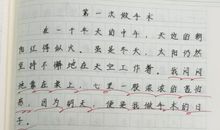 第一次做手术
在一个冬天的中午，天边的朝
阳红得似火。虽是冬天，太阳仍然
坚持不懈地在天空工作着。我闷闷
地靠在床上，七里一股浓浓的
，因为明天，便是我做手术的日
子。